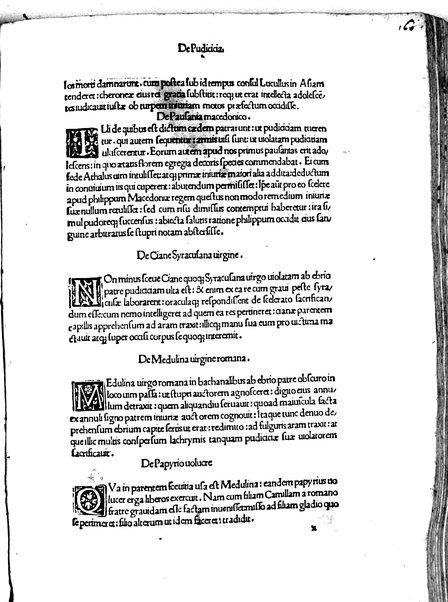 De Pudicicia
los morti damnarunt. cum postea sub id tempus consul Lucullus in Asiam
tenderet: cheroneæ eius rei gratia substitit: roq; ut erat intellecta adolescē
tes iudicauit iustæ ob turpem iniuriam motos præfectum occidisse.
De Pausania macedonico.
ILli de quibus est dictum cædem patrarunt: ut pudiciciam tueren
tur. qui autem sequentur: armis usi sunt: ut uiolatam pudiciciam
ulciscerentur. Eorum autem apud nos primus pausanias erit ado
lescens: in quo ætatis florem egregia decoris species commendabat. Ei cum
fede Athalus uim intulisset: atq; primæ iniuriæ maiori alia addita: deductum
in conuiuium iis qui cuperent: abutendum permisisset: Ipse aūt pro eo scelere
apud philippum Macedonæ regem questus non modo remedium iniuriæ
suæ nullum retulisset: sed cum risu dimissus contemptui haberetur: ira si
mul pudoreq; succensus: abiecta salutis ratione philippum occidit eius san
guine arbitratus se stupri notam abstersisse.
De Ciane Syracusana uirgine.
NOn minus sceue Ciane quoq; Syracusana uirgo uiolatam ab ebrio
patre pudiciciam ulta est: & enim ex ea re cum graui peste syra
cusæ laborarent: oraculaq; respondissent de scelerato sacrifican/
dum esse: cum nemo intelligeret ad quem ea res pertineret: cianæ parentem
capillis apprehensum ad aram traxit: illicq; manu sua eum pro uictima ma
ctauit atq; super occisi corpus se quoq; interemit.
De Medulina uirgine romana.
MEdulina uirgo romana in bachanalibus ab ebrio patre obscuro in
loco uim passa: ut stupri auctorem agnosceret: digito eius annu/
lum detraxit: quem aliquandiu seruauit: quoad manifesta facta
ex annuli signo patrem iniuriæ auctorem cognouit: Itaque tunc denuo de/
prehensum ebrium capite sertis ut erat: redimito: ad fulguris aram traxit: at
que illic multis conspersum lachrymis tanquam pudiciciæ suæ uiolatorem
sacrificauit.
De Papyrio uolucre
QVa in parentem sceuitia usa est Medulina: eandem papyrius uo
lucer erga liberos exercuit. Nam cum filiam Camillam a romano
fratre grauidam esse factam inuenisset: misso ad filiam gladio quo
se perimeret: filio alterum ut idem faceret: tradidit.